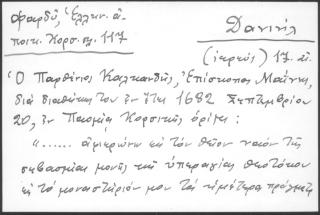 Φαρδύ, Ἑλλην. ἀ-
ποικ. Κορσ. σελ. 117
Δανιήλ
(ἱερεύς) 17. αἰ.
Ὁ Παρθένιος Καλκανδῆς, Ἐπίσκοπος Μαΐνης,
διά διαθήκης του ἐν ἔτει 1682 Σεπτεμβρίου
20, ἐν Παομίᾳ Κορσικῆς ὁρίζει:
"...... ἀφιερώνω εἰς τόν θεῖον ναόν τῆς
σεβασμίας μονῆς τῆς ὑπεραγίας θεοτόκου
εἰς τό μοναστήριόν μου τά ἡμέτερα πράγματα